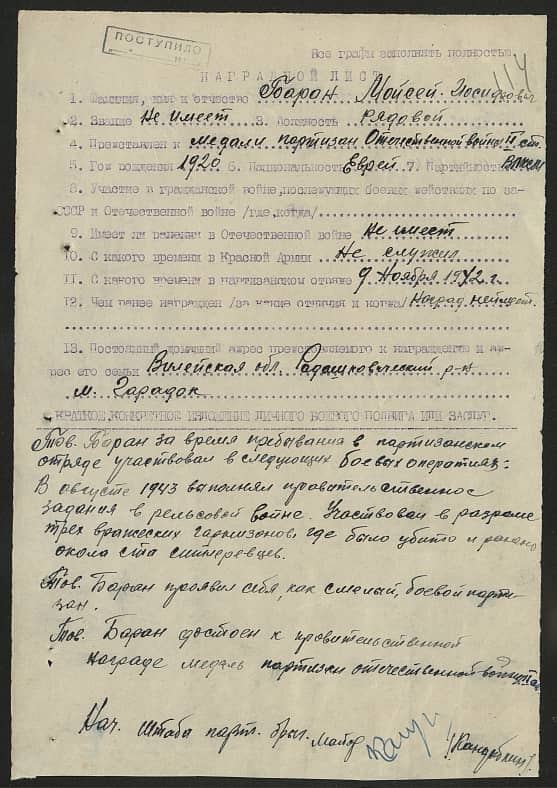 ПОСТУПИЛО
Все графы заполнять полностью.
114
НАГРАДНОЙ ЛИСТ
1. Фамилия, имя и отчество Баран Мойсей-Иосифович
2. Звание Не имеет 3. Должность Рядовой
4. Представлен к медали партизан Отечественной войны II ст.
5. Год рождения 1920 6. Национальность Еврей 7. Партийность ВЛКСМ
8. Участие в гражданской войне, последующих боевых действиях по за-
СССР и Отечественной войне /где, когда/
9. Имеет ли ранения в Отечественной войне Не имеет
10. С какого времени в Красной Армии Не служил
11. С какого времени в партизанском отряде 9 Ноября 1942 г.
12. Чем ранее награжден /за какие отличия и когда/ Наград не имеет.
13. Постоянный домашний адрес представляемого к награждению и ад-
рес его семьи Вилейская обл. Радошковический р-н
м. Гарадок
КРАТКОЕ, КОНКРЕТНОЕ ИЗЛОЖЕНИЕ ЛИЧНОГО БОЕВОГО ПОДВИГА ИЛИ ЗАСЛУГ.
Тов. Баран за время пребывания в партизанском
отряде участвовал в следующих боевых оператиях:
В августе 1943 выполнял правательственное
задания в рельсовой войне. Участвовал в разроме
трех вражеских гарнизонов, где было убито и ранено
около ста
Тов. Баран проявил себя, как смелый, боевой парти-
зан.
Тов. Баран достоен к правительственной
награде медаль партизан отечественной войны
Нач. Штаба парт. бриг. майор